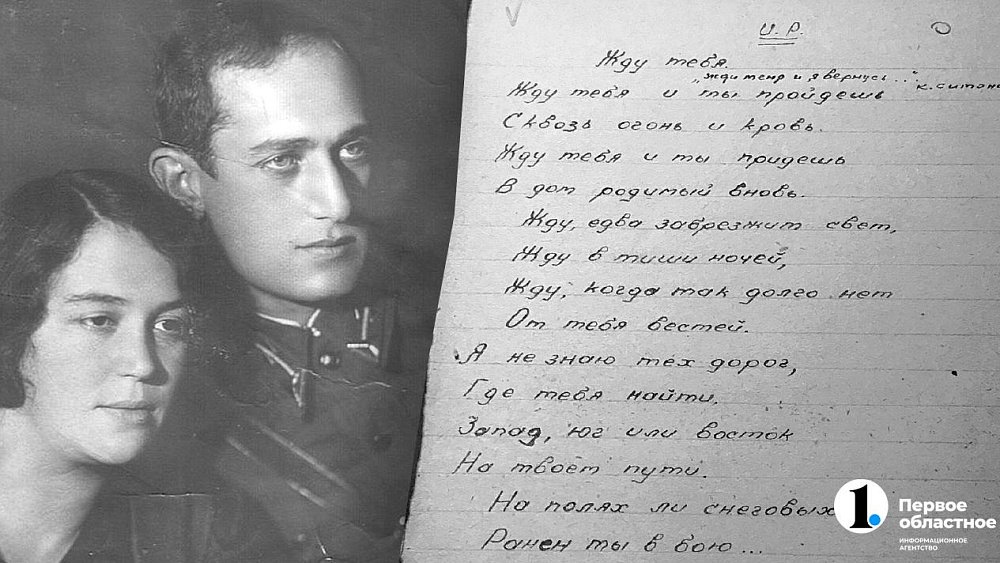 И. Р.
Жду тебя.
„жди меня и я вернусь..."
К. Симоно
Жду тебя и ты пройдешь
Сквозь огонь и кровь.
Жду тебя и ты придешь
В дом родимый вновь.
Жду, едва забрезжит свет,
Жду в тиши ночей,
Жду, когда так долго нет
От тебя вестей.
Я не знаю тех дорог,
Где тебя найти.
Запад, юг или восток
На твоем пути.
На полях ли снеговых
Ранен ты в бою...
1.
Первое
областное
ИНФОРМАЦИОННОЕ
АГЕНТСТВО